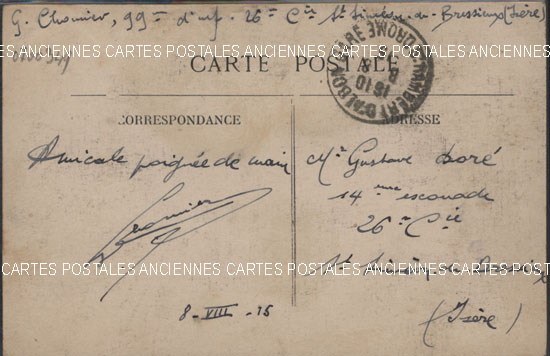 G. Chomier, 99e d'inf. 26e Cie St Siméon-de-Bressieux (Isère)
CARTE POSTALE
CORRESPONDANCE
ADRESSE
Amicale poignée de main
Chomier
8-VIII-15
Mr Gustave Doré
14eme escouade
26e Cie
St Siméon de
(Isère)
CARTES POSTALES ANCIENNES CARTES POSTALES ANCIENNES CARTES POSTALES ANCIENNES
CARTES POSTALES ANCIENNES CARTES POSTALES ANCIENNES CARTES POSTALES ANCIENNES